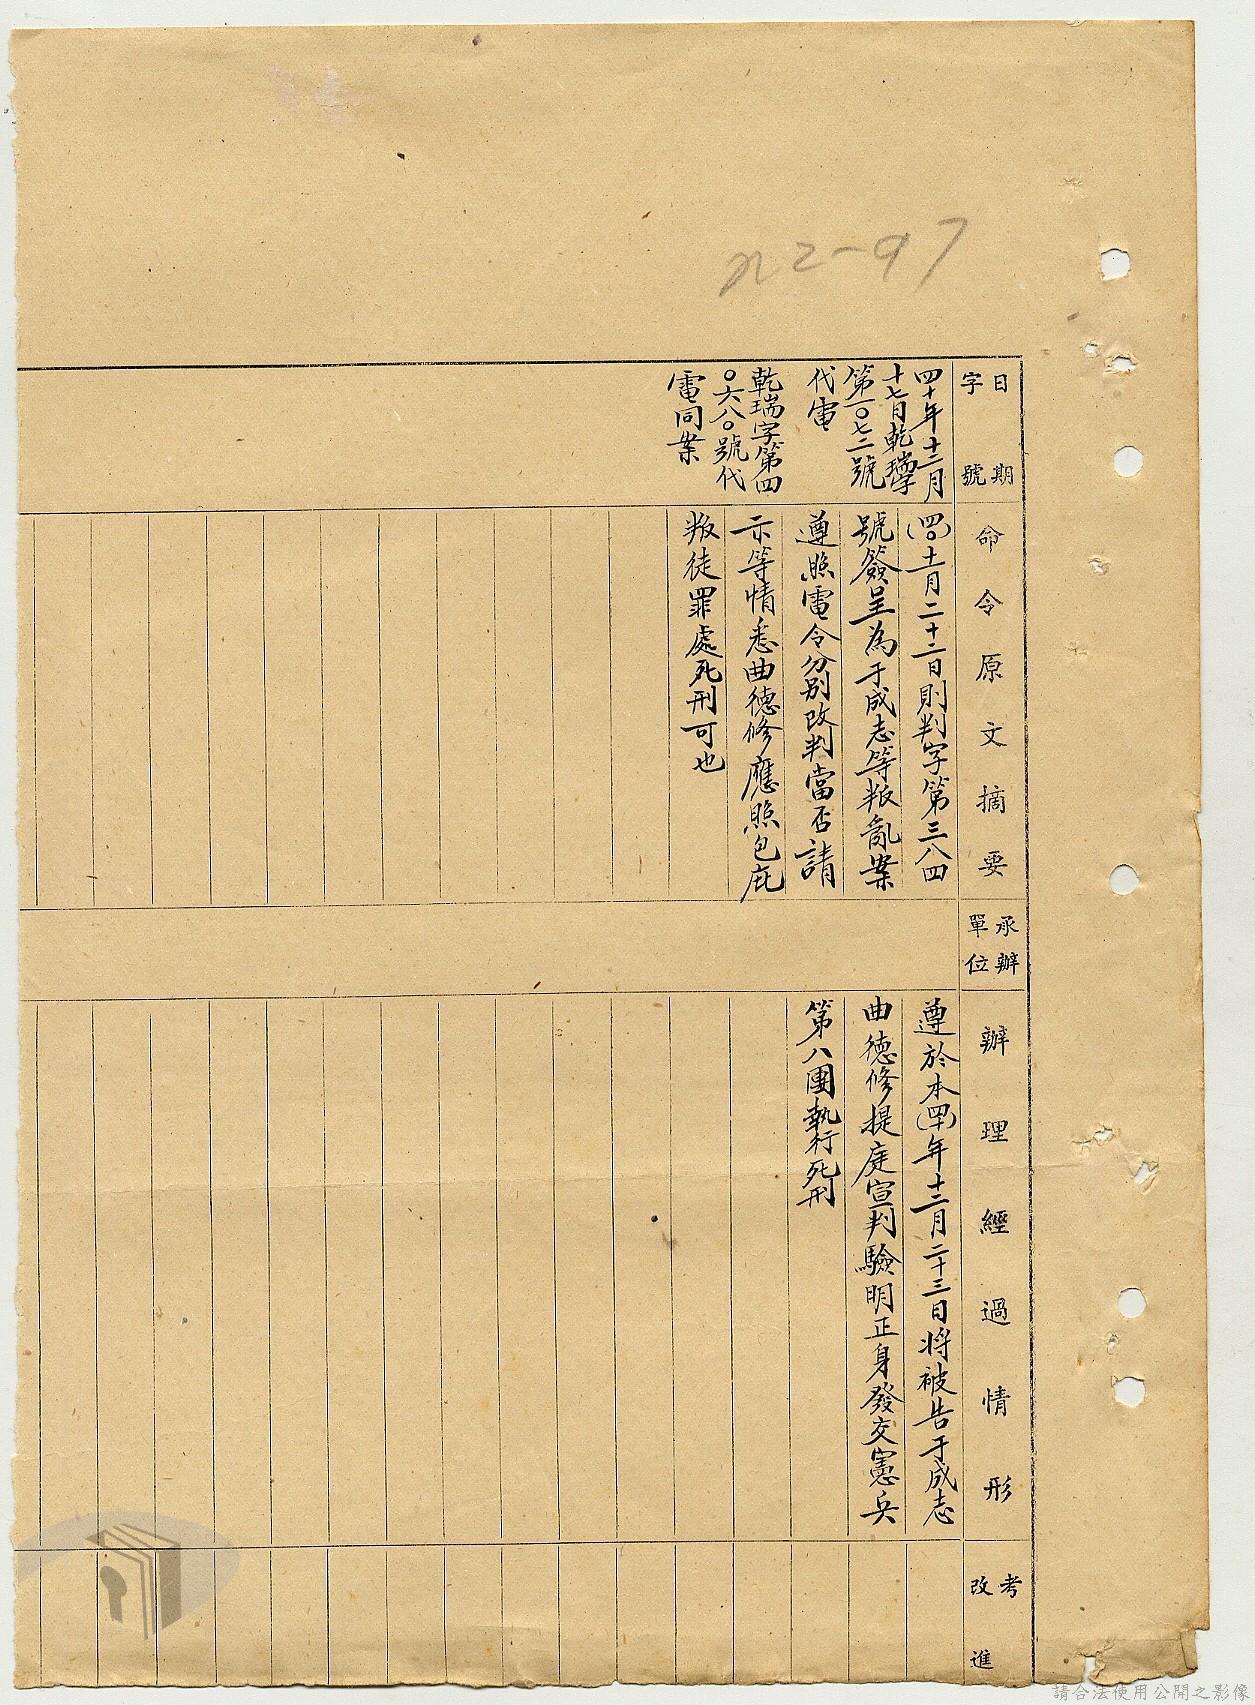 日期
字號
命令原文摘要
承辦
單位
辦理經過情形
考
改進
四十年十二月
十七日乾瑞字
第一〇七二號
代電
乾瑞字第四
〇六八〇號代
電同案
(四〇)十一月二十二日則判字第三八四
號簽呈為于成志等叛亂案
遵照電令分別改判當否請
示等情悉曲德修應照包庇
叛徒罪處死刑可也
遵於本(四十)年十二月二十三日將被告于成志
曲德修提庭宣判驗明正身發交憲兵
第八團執行死刑
請合法使用公開之影像